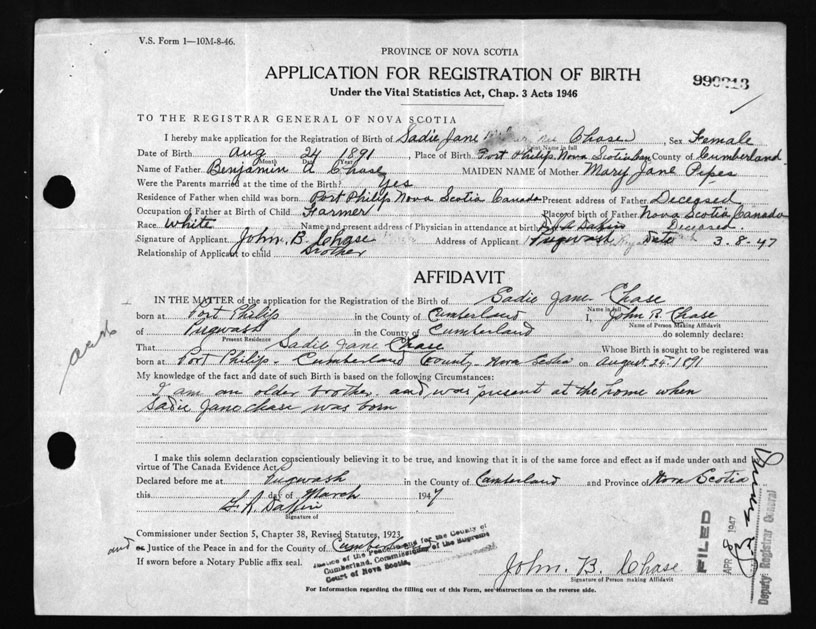 V.S. Form 1—10M-8-46.
PROVINCE OF NOVA SCOTIA
APPLICATION FOR REGISTRATION OF BIRTH
Under the Vital Statistics Act, Chap. 3 Acts 1946
TO THE REGISTRAR GENERAL OF NOVA SCOTIA
I hereby make application for the Registration of Birth of Sadie Jane Chase, Sex Female
Print Name in full
Date of Birth Aug 24 1891, Place of Birth Port Philip, Nova Scotia County of Cumberland
Month Day Year
Name of Father Benjamin A Chase MAIDEN NAME of Mother Mary Jane Pipes
Were the Parents married at the time of the Birth? Yes
Residence of Father when child was born Port Philip Nova Scotia Canada Present address of Father Deceased
Occupation of Father at Birth of Child Farmer Place of birth of Father Nova Scotia Canada
Race White Name and present address of Physician in attendance at birth Deceased.
Signature of Applicant John. B. Chase Address of Applicant Pugwash Date 3-8-47
Relationship of Applicant to child Brother
AFFIDAVIT
IN THE MATTER of the application for the Registration of the Birth of Sadie Jane Chase
Name in full
born at Port Philip in the County of Cumberland I, John B. Chase
Name of Person Making Affidavit
of Pugwash in the County of Cumberland do solemnly declare:
Present Residence
That Sadie Jane Chase Whose Birth is sought to be registered was
born at Port Philip - Cumberland County - Nova Scotia on August 24 - 1891
My knowledge of the fact and date of such Birth is based on the following Circumstances:
I am an older brother, and was present at the home when
Sadie Jane Chase was born
I make this solemn declaration conscientiously believing it to be true, and knowing that it is of the same force and effect as if made under oath and
virtue of The Canada Evidence Act.
Declared before me at Pugwash in the County of Cumberland and Province of Nova Scotia
this day of March 1947
Signature of
Commissioner under Section 5, Chapter 38, Revised Statutes, 1923
and or Justice of the Peace in and for the County of Cumberland
If sworn before a Notary Public affix seal.
Justice of the Peace in and for the County of
Cumberland, Commissioner of the Supreme
Court of Nova Scotia.
John. B. Chase
Signature of Person making Affidavit
For Information regarding the filling out of this Form, see instructions on the reverse side.
FILED
APR 8 1947
Deputy Registrar General